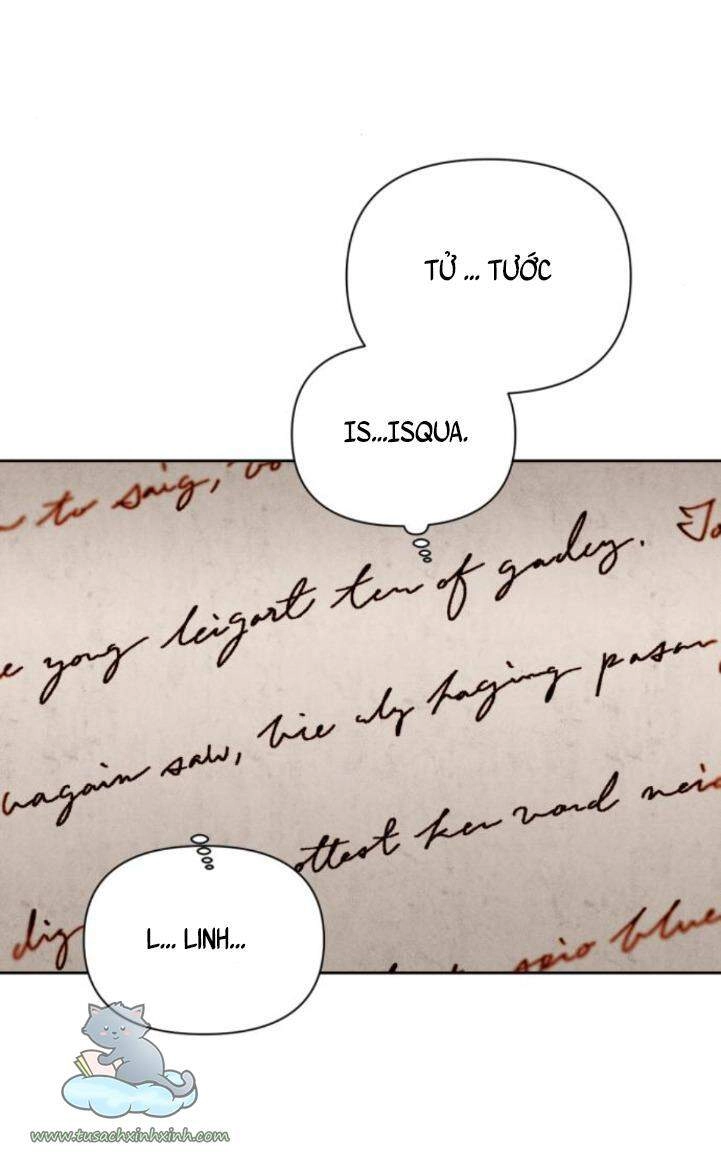 TỬ ... TƯỚC
IS...ISQUA.
to saig,
yong leigart ten of gadey.
wagain saw, hie aly haging pasan
ottest ken vord neig
L... LINH...
dig
soio blue
www.tusachxinhxinh.com